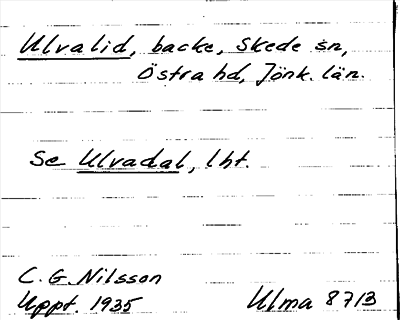 Ulvalid, backe, Skede sn,
Östra hd, Jönk. län.
Se Ulvadal, lht.
C. G. Nilsson
Uppt. 1935 Ulma 8713